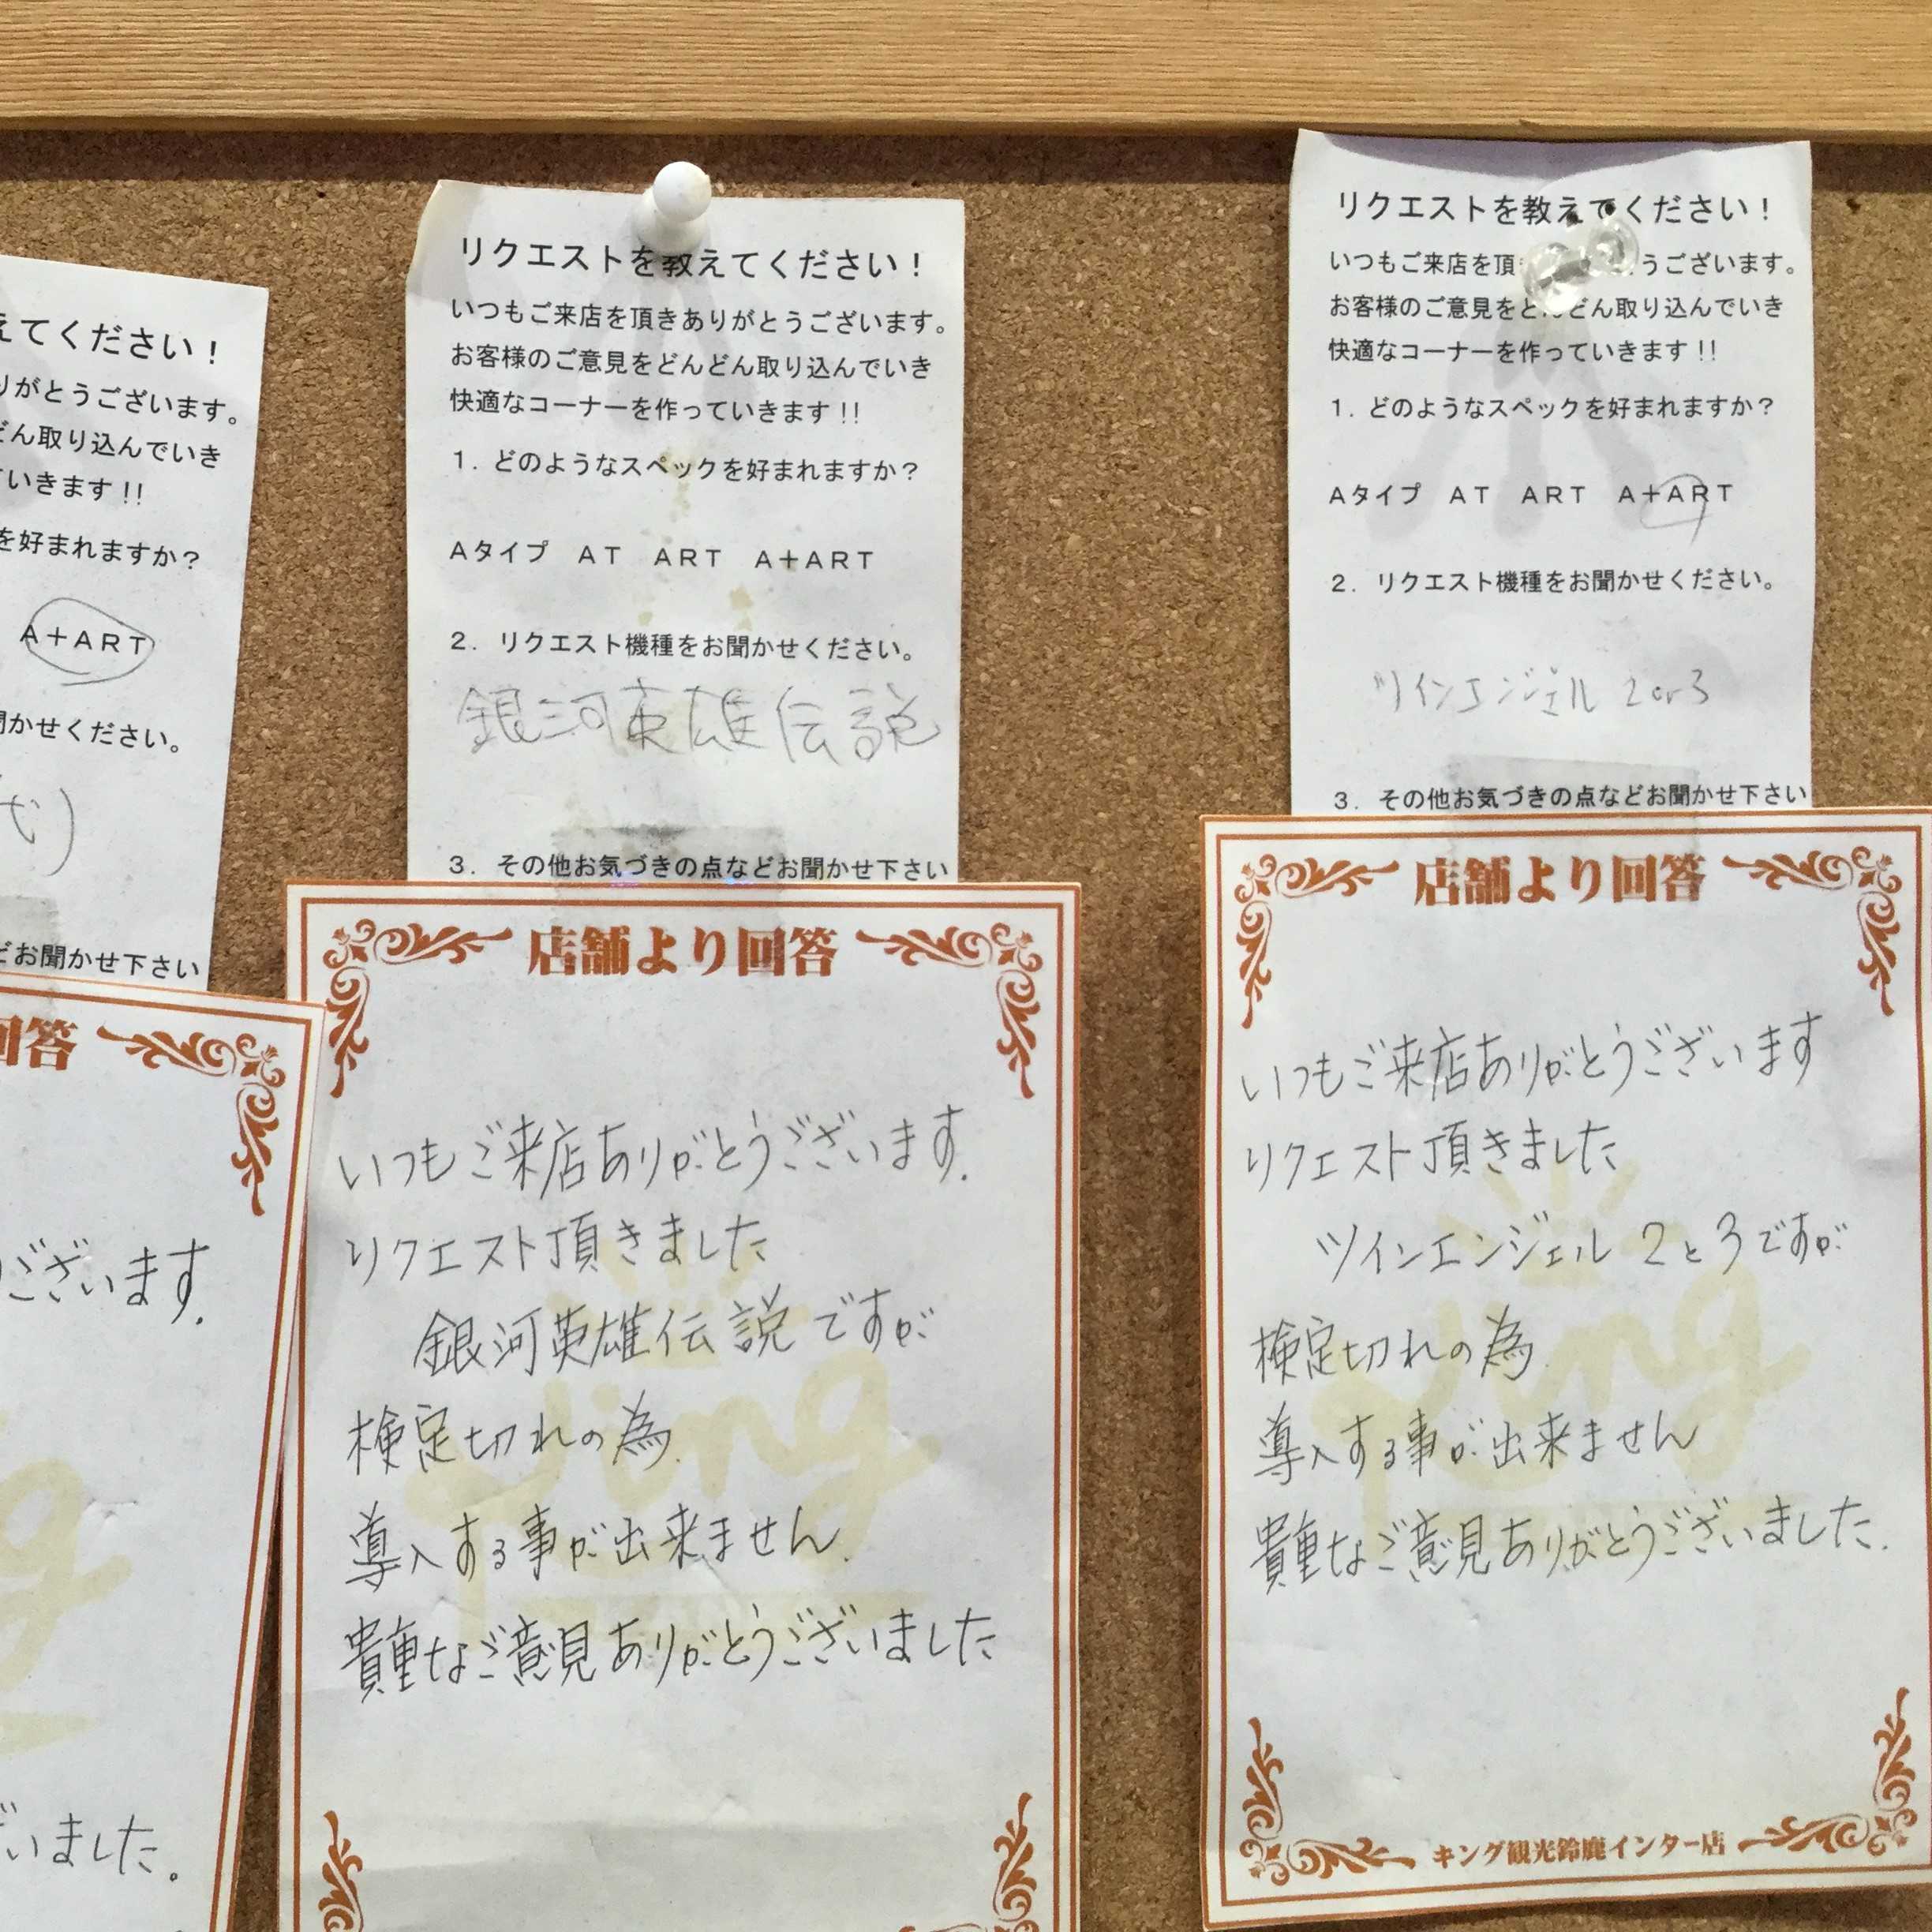 えてください！
りがとうございます。
どん取り込んでいき
いきます!!
を好まれますか？
A+ART
聞かせください。
代)
どお聞かせ下さい
回答
ございます.
いました。
リクエストを教えてください！
いつもご来店を頂きありがとうございます。
お客様のご意見をどんどん取り込んでいき
快適なコーナーを作っていきます!!
1. どのようなスペックを好まれますか？
Aタイプ AT ART A+ART
2. リクエスト機種をお聞かせください。
銀河英雄伝説
3. その他お気づきの点などお聞かせ下さい
店舗より回答
いつもご来店ありがとうございます.
リクエスト頂きました
銀河英雄伝説ですが
検定切れの為.
導入する事が出来ません.
貴重なご意見ありがとうございました
King
リクエストを教えてください！
いつもご来店を頂 うございます。
お客様のご意見をどんどん取り込んでいき
快適なコーナーを作っていきます!!
1. どのようなスペックを好まれますか？
Aタイプ AT ART A+ART
2. リクエスト機種をお聞かせください。
ツインエンジェル 2or3
3. その他お気づきの点などお聞かせ下さい
店舗より回答
いつもご来店ありがとうございます
リクエスト頂きました
ツインエンジェル 2と3ですが
検定切れの為
導入する事が出来ません
貴重なご意見ありがとうございました.
King
キング観光鈴鹿インター店